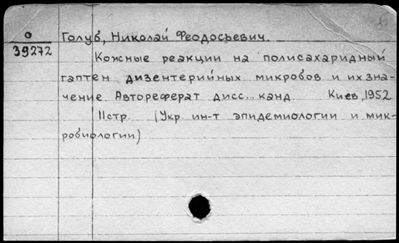 О
39272
Голуб, Николай Феодосьевич.
Кожные реакции на полисахаридный
гаптен дизентерийных микробов и их зна-
чение. Автореферат дисс... канд. Киев, 1952
11стр. (Укр ин-т эпидемиологии и мик-
робиологии)